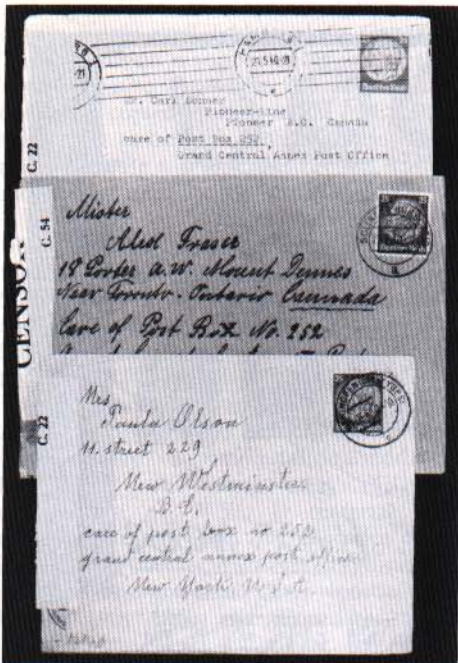 23.5.40.21
Mr. Carl Bonner
Pioneer-Mine
Pioneer B.C. Canada
care of Post Box 252,
Grand Central Annex Post Office
C. 22
Mister
Aled Fraser
18 Porter a.W. Mount Dennes
Near Toronto - Ontario Cannada
Care of Post Box No. 252
CENSOR
C. 54
Mrs
Paula Olson
11. street 229
New Westminster
B.C.
care of post box no 252
grand central annex post office
New York U.S.A.
C. 22